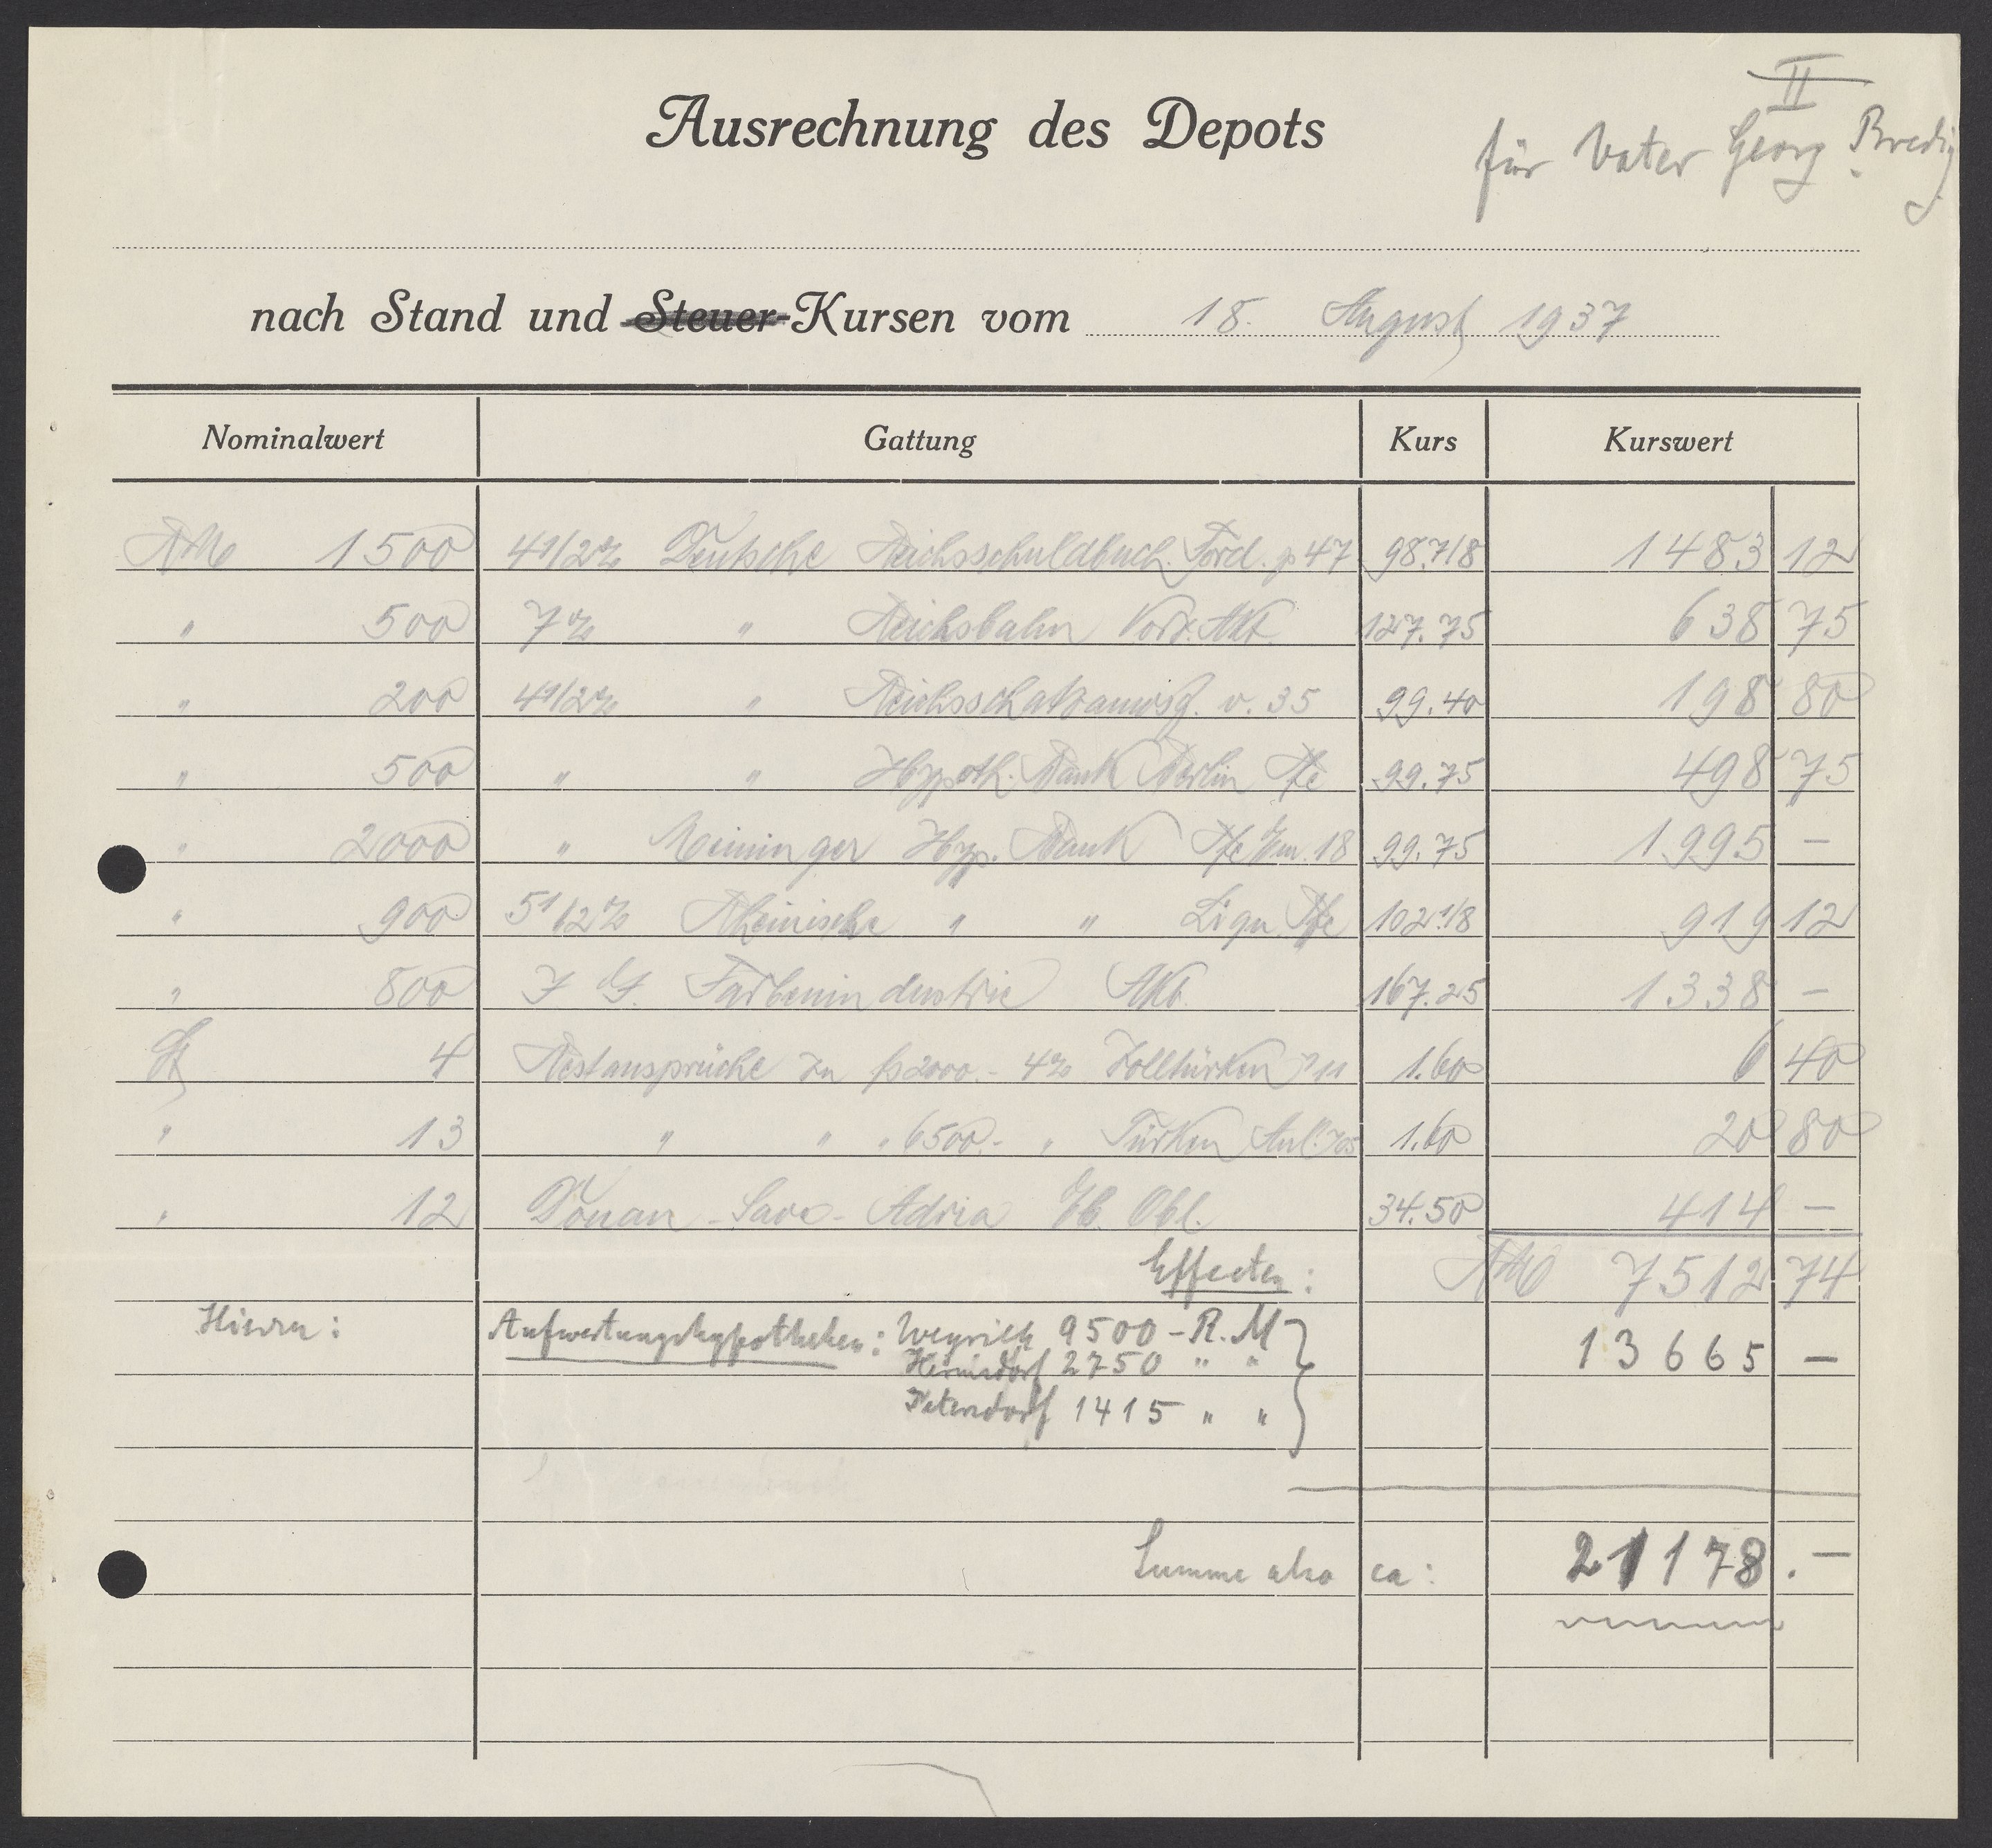 II
Ausrechnung des Depots
für Vater Georg Bredig
nach Stand und Steuer-Kursen vom 18. August 1937
Nominalwert Gattung Kurs Kurswert
RM 1500 4 1/2% Deutsche Reichsschuldbuch. Ford. p 47 98.7/8 1483 12
" 500 7% " Reichsbahn Vorz. Akt. 127.75 638 75
" 200 4 1/2% " Reichsschatzanwsg. v. 35 99.40 198 80
" 500 " " Hypoth. Bank Berlin Pfe 99.75 498 75
" 2000 " Meininger Hyp. Bank Pfe Em. 18 99.75 1995 —
" 900 5 1/2% Rheinische " " Liqu. Pfe 102.1/8 919 12
" 800 I G. Farbenindustrie Akt. 167.25 1338 —
St 4 Restansprüche zu 2000.- 4% Zolltürken 11 1.60 6 40
" 13 " " " 6500.- " Türken Anl. 1.60 20 80
" 12 Donau-Save-Adria Eb. Obl. 34.50 414 —
Effecten: RM 7512 74
Hierzu: Aufwertungshypotheken: Weyrich 9500 - R.M 13665 —
Hermsdorf 2750 " "
Petersdorf 1415 " "
Summe also ca: 21178.—